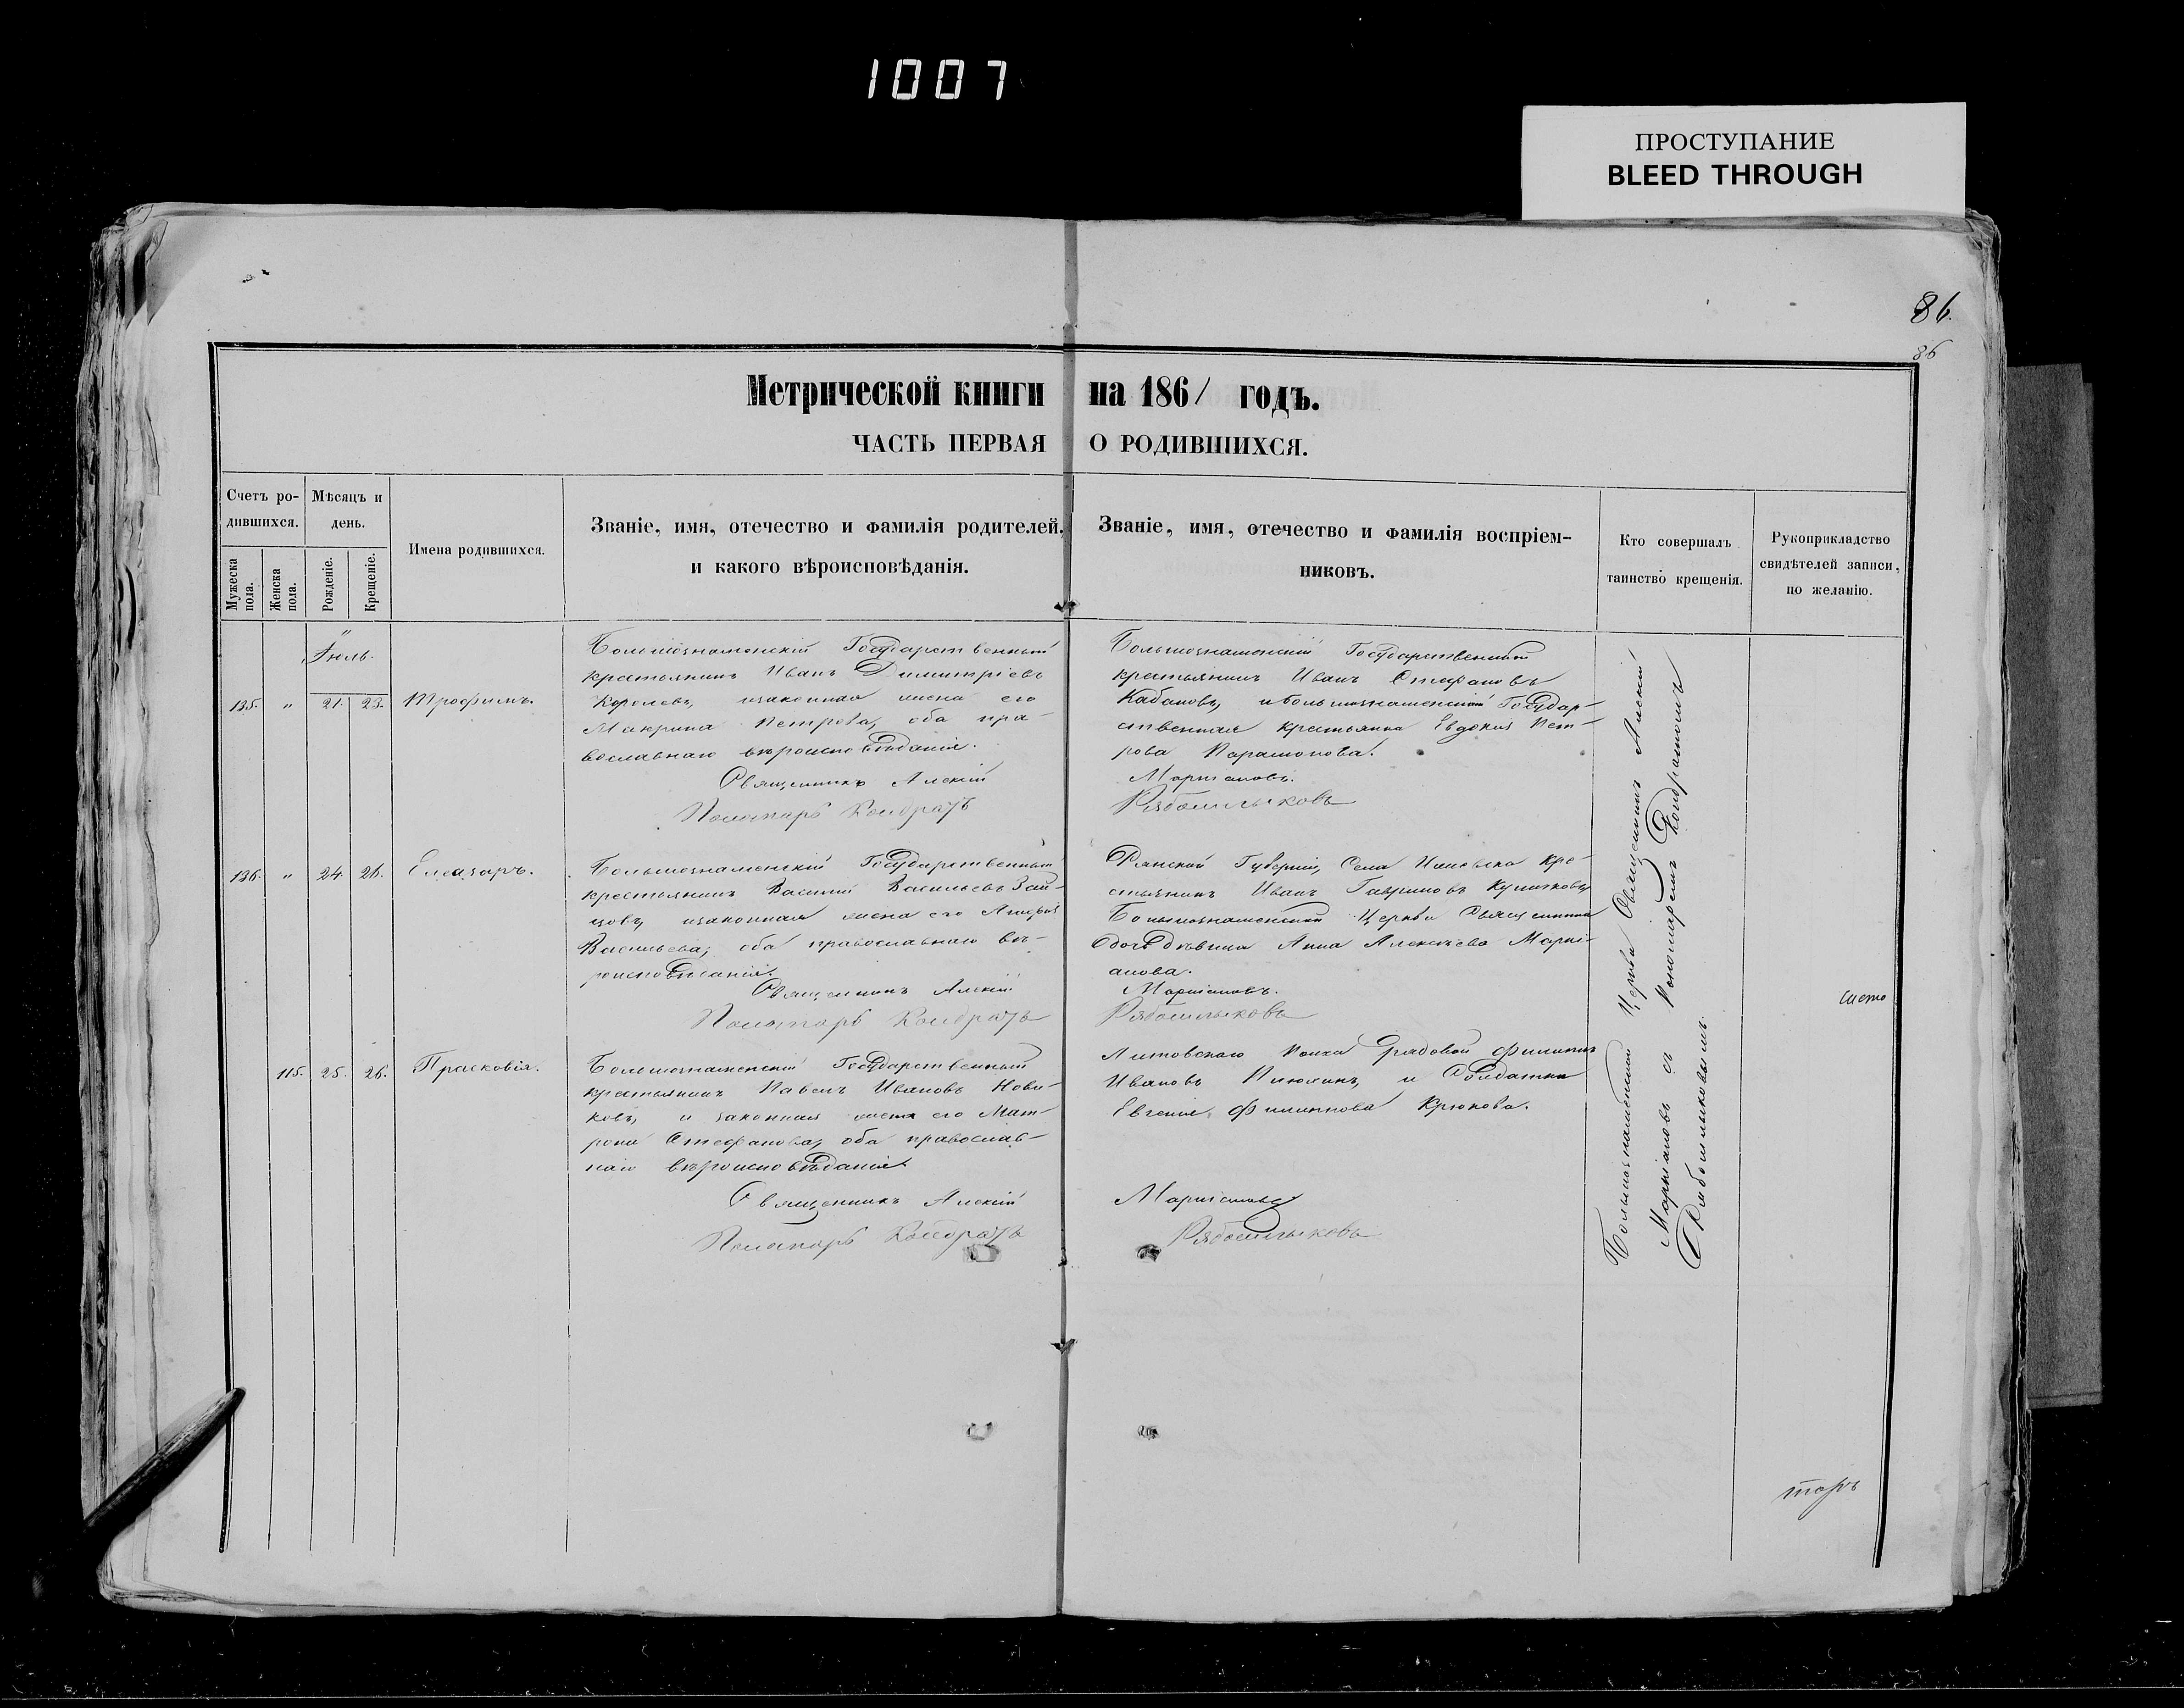 1007
ПРОСТУПАНИЕ
BLEED THROUGH
86.
86
Метрической книги на 1861 годъ.
ЧАСТЬ ПЕРВАЯ О РОДИВШИХСЯ.
Счетъ ро-
дившихся.
Мужеска пола.
Женска пола.
Мѣсяцъ и
день.
Рожденіе.
Крещеніе.
Имена родившихся.
Званіе, имя, отечество и фамилія родителей,
и какого вѣроисповѣданія.
Званіе, имя, отечество и фамилія воспріем-
никовъ.
Кто совершалъ
таинство крещенія.
Рукоприкладство
свидѣтелей записи,
по желанію.
Іюль.
135. " 21. 23. Трофимъ.
Большезнаменскій Государственный
крестьянинъ Иванъ Димитріевъ
Королевъ, изаконная жена его
Макрина Петрова, оба пра-
вославнаго вѣроисповѣданія.
Священникъ Алексій
Пономарь Кондратъ
Большезнаменскій Государственный
крестьянинъ Иванъ Стефановъ
Кабановъ, и большезнаменская Государ-
ственная крестьянка Евдокия Пет-
рова Парамонова.
Маркіановъ.
Рябошлыковъ
136. " 24. 26. Елеазаръ.
Большезнаменскій Государственный
крестьянинъ Василій Васильевъ Зай-
цовъ, изаконная жена его
Васильева, оба православнаго вѣ-
роисповѣданія.
Священникъ Алексій
Пономарь Кондратъ
Губерніи, Села кре-
стьянинъ Иванъ Гавриловъ
Большезнаменской Церкви Священника
дѣвица Анна Алексѣева Маркі-
анова.
Маркіановъ.
Рябошлыковъ
115. 25. 26. Прасковія.
Большезнаменскій Государственный
крестьянинъ Павелъ Ивановъ Нови-
ковъ, и законная жена его Мат-
рона Стефанова, оба православ-
наго вѣроисповѣданія.
Священникъ Алексій
Пономарь Кондратъ
Литовскаго Полка Рядовой Филиппъ
Ивановъ и Солдатка
Евгенія Филиппова Крюкова.
Маркіановъ
Рябошлыковъ
Большезнаменской Церкви Священникъ Алексій
Маркіановъ съ Пономаремъ Кондратомъ
Рябошлыковымъ.